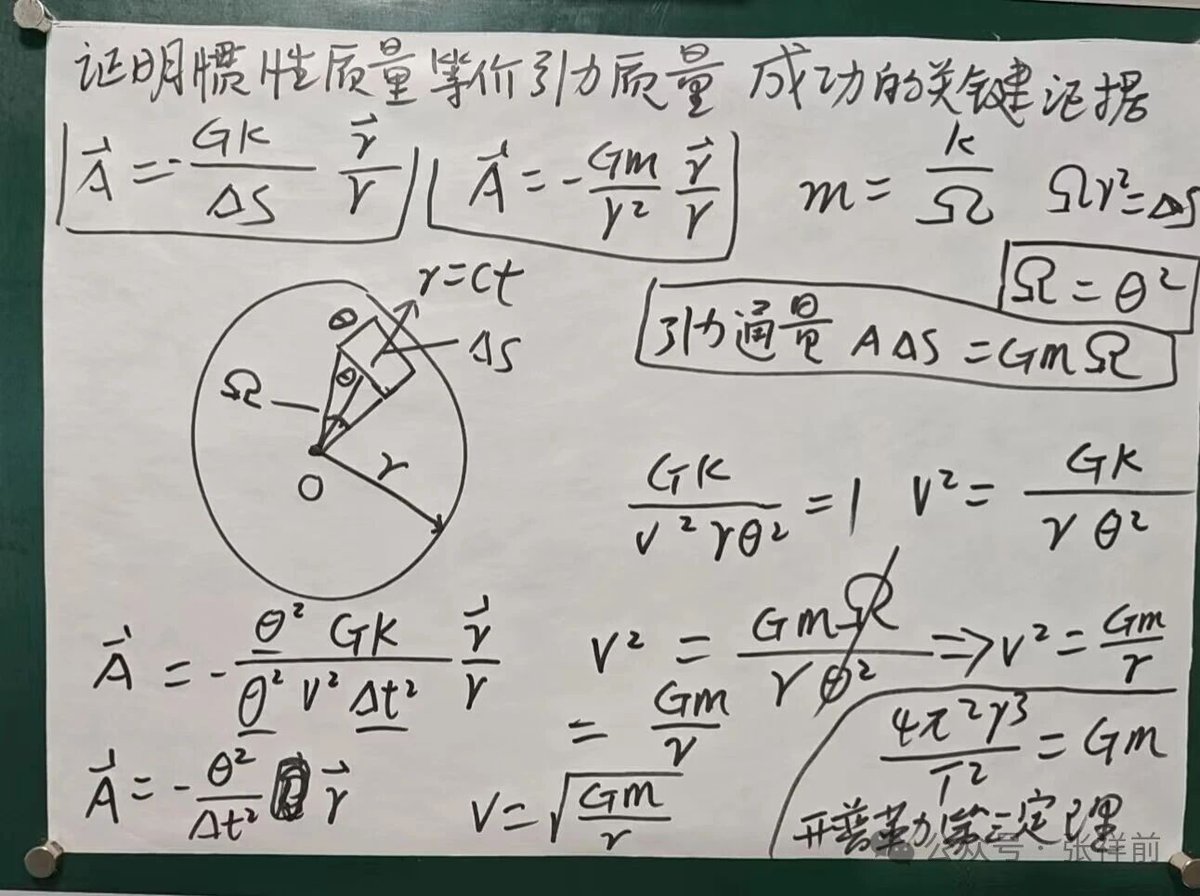 证明惯性质量等价引力质量 成功的关键证据
A⃗ = -GK/ΔS r⃗/r
A⃗ = -Gm/r² r⃗/r
m = K/Ω Ωr²=ΔS
Ω = θ²
引力通量 AΔS = GmΩ
r=ct
θ
ΔS
θ
Ω
O
r
GK/v²rθ² = 1 v² = GK/rθ²
A⃗ = -θ²GK/θ²v²Δt² r⃗/r
v² = GmΩ/rθ² ⇒ v² = Gm/r
= Gm/r
4π²r³/T² = Gm
A⃗ = -θ²/Δt² r⃗
v = √Gm/r
开普勒第三定理
公众号·张祥前